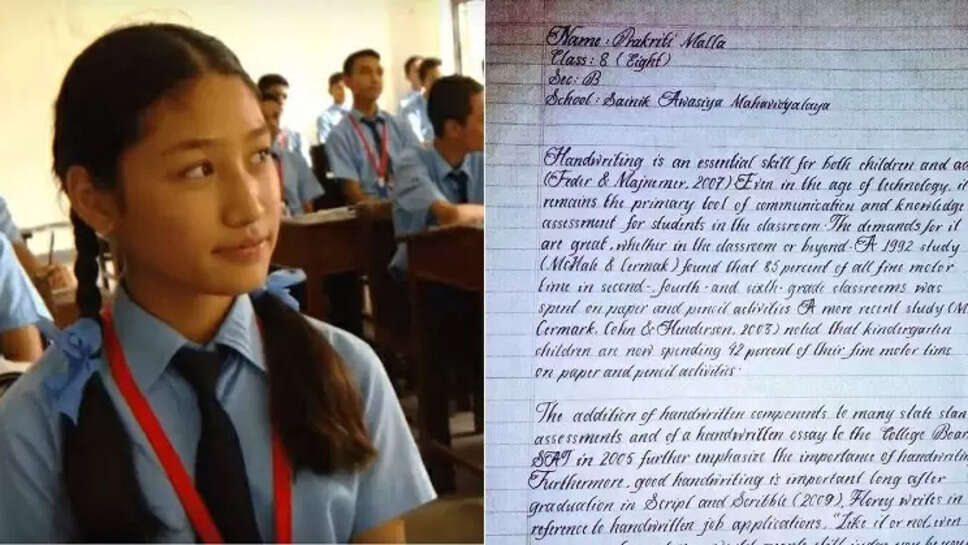 Name : Prakriti Malla
Class : 8 (Eight)
Sec : B
School : Sainik Awasiya Mahavidyalaya
Handwriting is an essential skill for both children and ad
(Feder & Majnemer, 2007) Even in the age of technology, it
remains the primary tool of communication and knowledge
assessment for students in the classroom. The demands for it
are great, whether in the classroom or beyond. A 1992 study
(McHale & Cermak) found that 85 percent of all fine motor
time in second-, fourth- and sixth- grade classrooms was
spent on paper and pencil activities A more recent study (M
Cermark, Cohn & Henderson, 2003) noted that kindergarten
children are now spending 42 percent of their fine motor time
on paper and pencil activities.
The addition of handwritten components to many state stan
assessments and of a handwritten essay to the College Boar
SAT in 2005 further emphasize the importance of handwriti
Furthermore, good handwriting is important long after
graduation in Script and Scribble (2009), Florey writes in
reference to handwritten job applications, "Like it or not, even